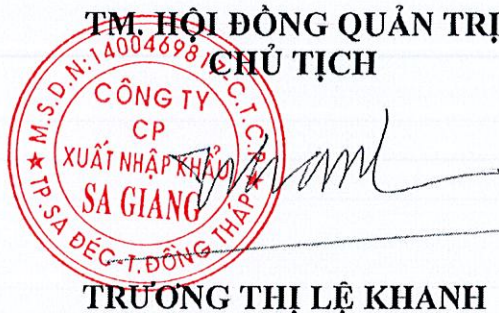 TM. HỘI ĐỒNG QUẢN TRỊ
CHỦ TỊCH
M.S.D.N:14004698 C.T.C.P
CÔNG TY
CP
XUẤT NHẬP KHẨU
SA GIANG
TP.SA ĐÉC-T.ĐỒNG THÁP
TRƯƠNG THỊ LỆ KHANH